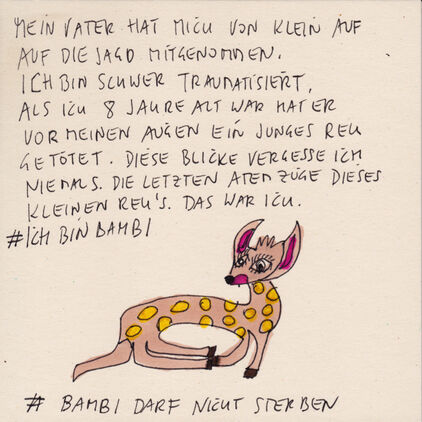 MEIN VATER HAT MICH VON KLEIN AUF
AUF DIE JAGD MITGENOMMEN.
ICH BIN SCHWER TRAUMATISIERT,
ALS ICH 8 JAHRE ALT WAR HAT ER
VOR MEINEN AUGEN EIN JUNGES REH
GETÖTET. DIESE BLICKE VERGESSE ICH
NIEMALS. DIE LETZTEN ATEMZÜGE DIESES
KLEINEN REH'S. DAS WAR ICH.
#ICH BIN BAMBI
# BAMBI DARF NICHT STERBEN